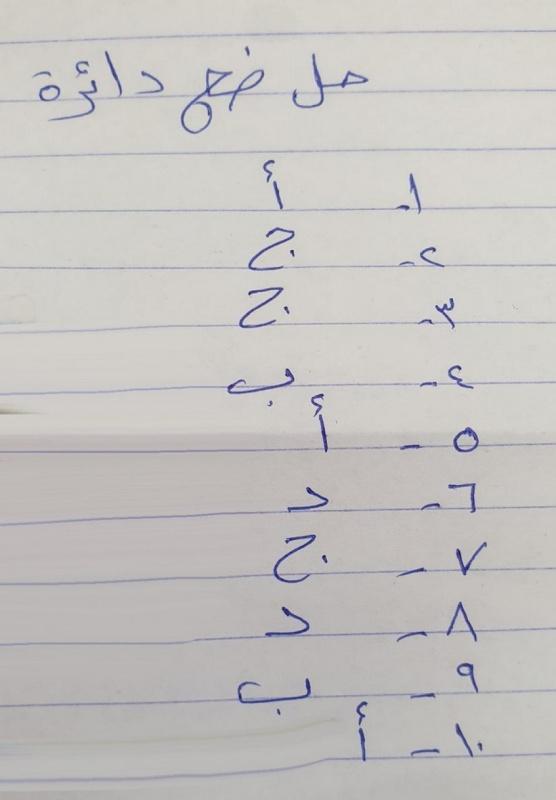 حل ضع دائرة
١- أ
٢- ج
٣- ج
٤- ب
٥- أ
٦- د
٧- ج
٨- د
٩- ب
١٠- أ